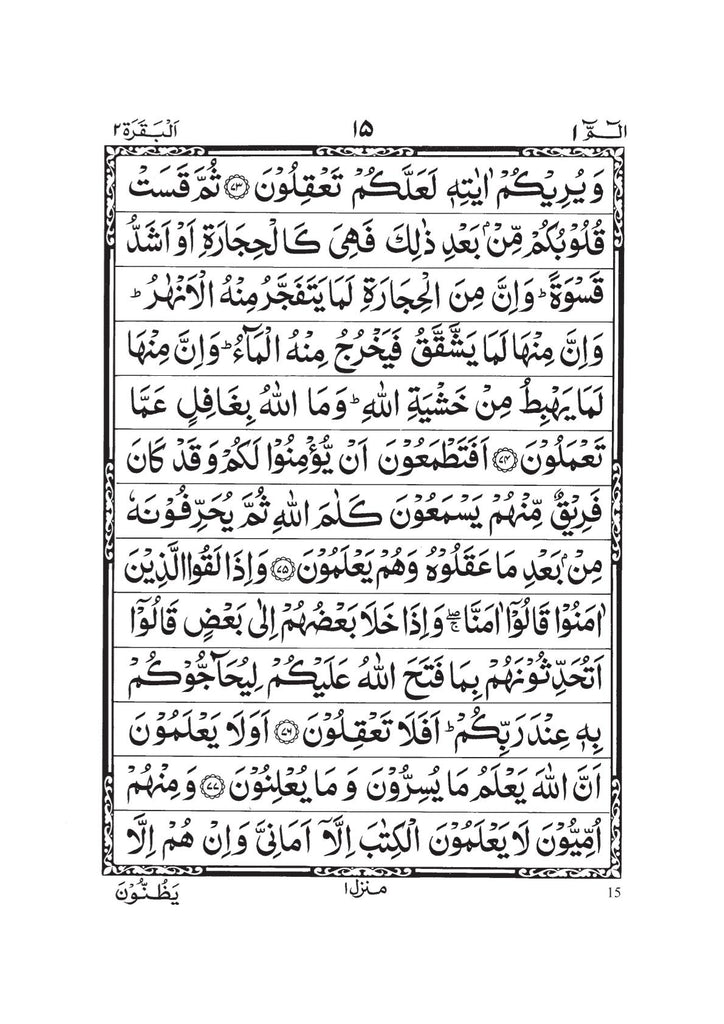 الٓمّٓ ۱ ۱۵ اَلْبَقَرَة ۲
وَيُرِيْكُمْ اٰيٰتِهٖ لَعَلَّكُمْ تَعْقِلُوْنَ ﴿۷۳﴾ ثُمَّ قَسَتْ
قُلُوْبُكُمْ مِّنْۢ بَعْدِ ذٰلِكَ فَهِىَ كَالْحِجَارَةِ اَوْ اَشَدُّ
قَسْوَةً ؕ وَاِنَّ مِنَ الْحِجَارَةِ لَمَا يَتَفَجَّرُ مِنْهُ الْاَنْهٰرُ ؕ
وَاِنَّ مِنْهَا لَمَا يَشَّقَّقُ فَيَخْرُجُ مِنْهُ الْمَآءُ ؕ وَاِنَّ مِنْهَا
لَمَا يَهْبِطُ مِنْ خَشْيَةِ اللّٰهِ ؕ وَمَا اللّٰهُ بِغَافِلٍ عَمَّا
تَعْمَلُوْنَ ﴿۷۴﴾ اَفَتَطْمَعُوْنَ اَنْ يُّؤْمِنُوْا لَكُمْ وَقَدْ كَانَ
فَرِيْقٌ مِّنْهُمْ يَسْمَعُوْنَ كَلٰمَ اللّٰهِ ثُمَّ يُحَرِّفُوْنَهٗ
مِنْۢ بَعْدِ مَا عَقَلُوْهُ وَهُمْ يَعْلَمُوْنَ ﴿۷۵﴾ وَاِذَا لَقُوا الَّذِيْنَ
اٰمَنُوْا قَالُوْٓا اٰمَنَّا ۖۚ وَاِذَا خَلَا بَعْضُهُمْ اِلٰى بَعْضٍ قَالُوْٓا
اَتُحَدِّثُوْنَهُمْ بِمَا فَتَحَ اللّٰهُ عَلَيْكُمْ لِيُحَآجُّوْكُمْ
بِهٖ عِنْدَ رَبِّكُمْ ؕ اَفَلَا تَعْقِلُوْنَ ﴿۷۶﴾ اَوَلَا يَعْلَمُوْنَ
اَنَّ اللّٰهَ يَعْلَمُ مَا يُسِرُّوْنَ وَمَا يُعْلِنُوْنَ ﴿۷۷﴾ وَمِنْهُمْ
اُمِّيُّوْنَ لَا يَعْلَمُوْنَ الْكِتٰبَ اِلَّآ اَمَانِىَّ وَاِنْ هُمْ اِلَّا
15 منزل ۱ يَظُنُّوْنَ